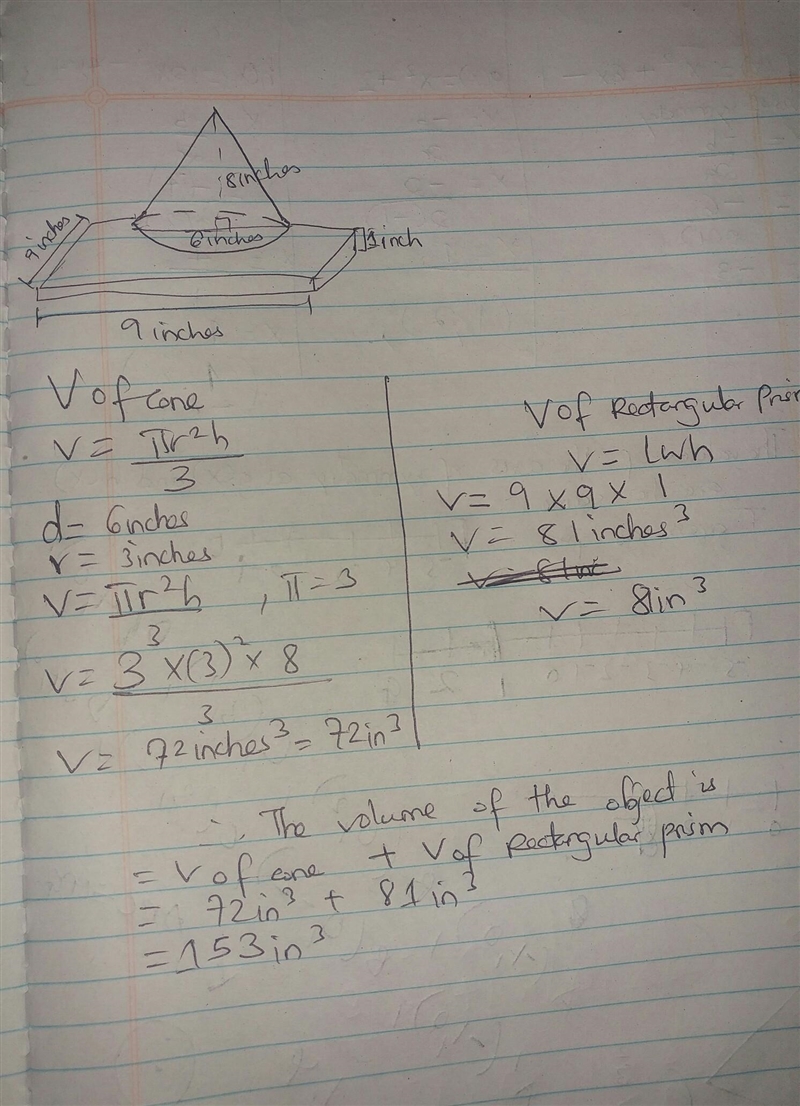 8inches
9inches
6inches
1inch
9 inches
V of cone
V = πr²h
3
d= 6inches
r = 3inches
V = πr²h , π=3
3
V= 3 x(3)² x 8
3
V= 72inches³ = 72in³
V of Rectangular Prism
V= lwh
V= 9 x 9 x 1
V= 81inches³
V= 81in³
∴ The volume of the object is
= V of cone + V of Rectangular prism
= 72in³ + 81in³
= 153in³